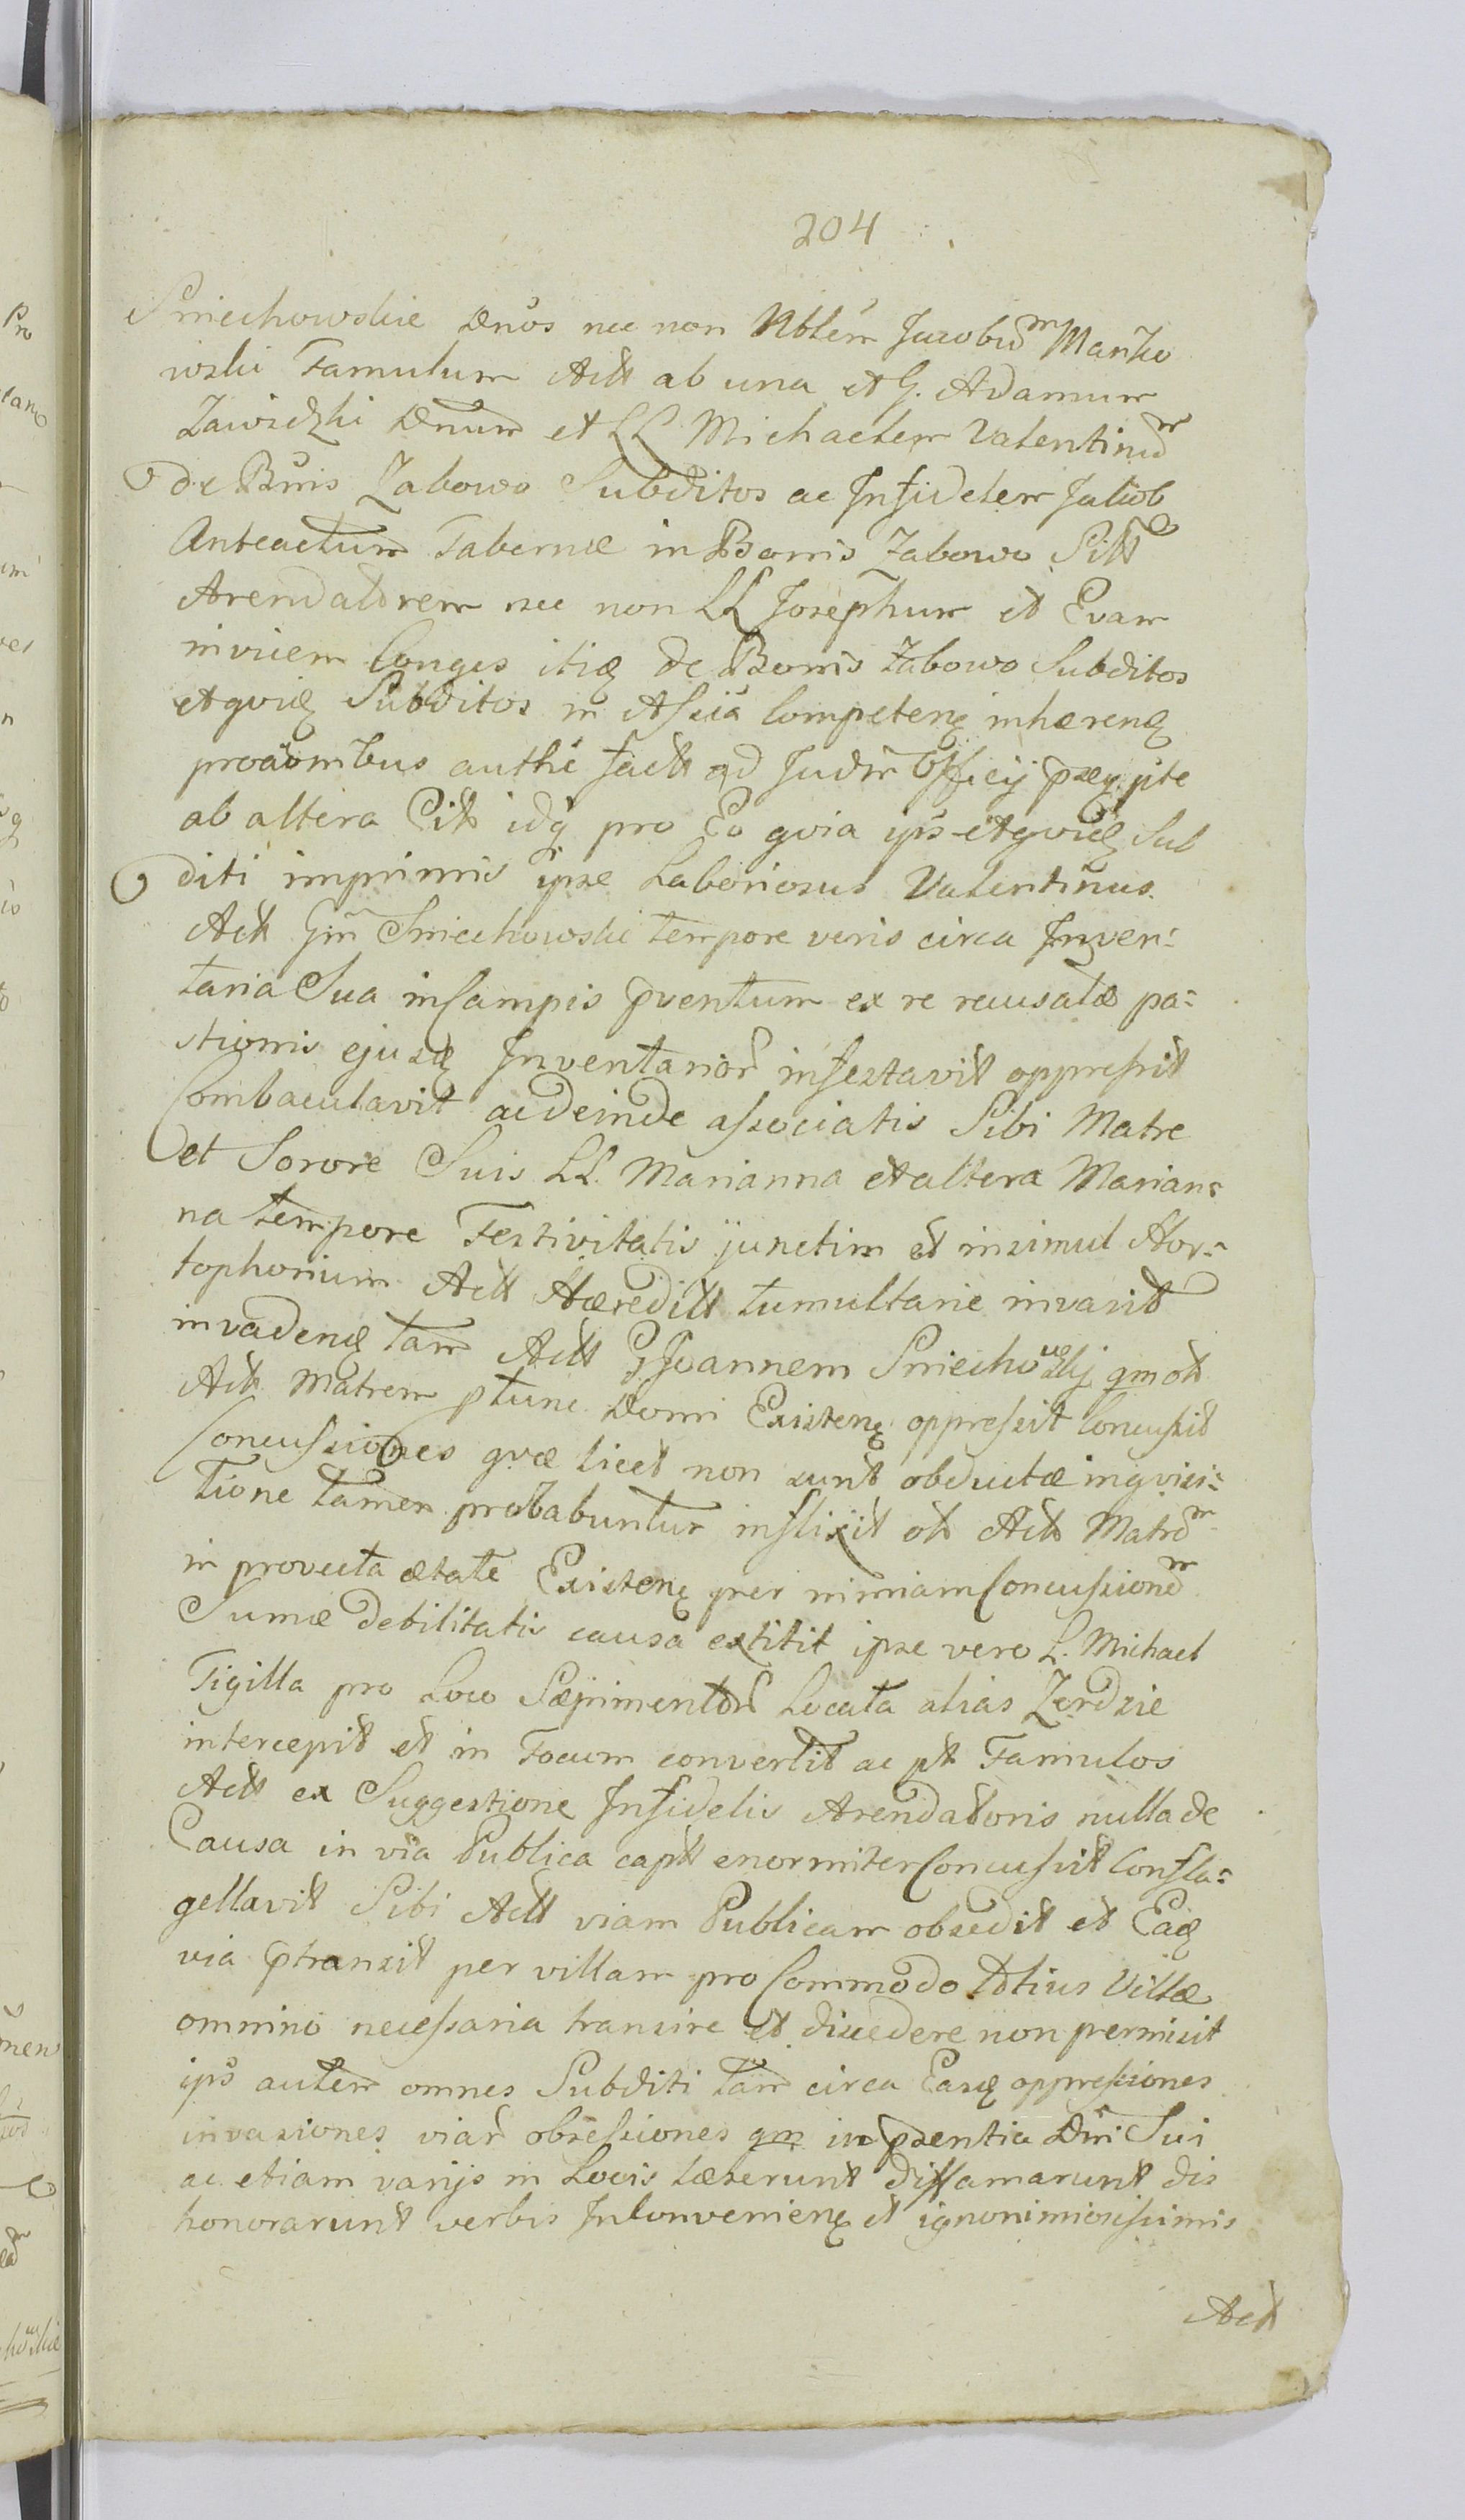 204
Smiechowskie Dnos nec non Nblem Jacobum Manko
wski Famulum Actt ab una et G. Adamum
Zawidzki Dnum et LL Michaelem Valentinum
de Bnis Zabowo Subditos ac Infidelem Jakob
Anteactum Tabernæ in Bonis Zabowo Sitt
Arendatorem nec non LL Josephum et Evam
invicem Conges itiq de Bonis Zabowo Subditos
Agvieq Subditos in Assia Competenq inhærenq
proãonibus authe factt ad Judm Officÿ præq pite
ab altera Citt idq pro Eo qvia ips Agvieq Sub
diti imprimis ipse Laboriosus Valentinus.
Actt Gm Smiechowski tempore veris circa Inven:
taria Sua in Campis pventum ex re recusatæ pa:
stionis ejusdq Inventarior infestavit oppressit
Combaculavit ac deinde associatis Sibi Matre
et Sorore Suis LL. Marianna et altera Marian:
na tempore Festivitatis junctim et insimul Hor:
tophonium Actt Hæreditt tumultarie invasit
invadenq tam Actt G Joannem Smiechowskj qm ott
Actt Matrem ptunc Domi Existenq oppressit Concussit
Concussiones qvæ licet non sunt obductæ inqvisi:
tione tamen probabuntur inflixit ott Actt Matrem
in provecta ætate Existenq per nimiam Concussionem
Sumæ debilitatis causa extitit ipse vero L. Michael
Tigilla pro Loco Sæpimentor Locata alias Zerdzie
intercepit et in Focum convertit ac ptt Famulos
Actt ex Suggestione Infidelis Arendatoris nulla de
Causa in via Publica captt enormiter Concussit Confla:
gellavit Sibi Actt viam Publicam obsedit et Eaq
via ptransit per villam pro Commodo totius Villæ
omnino necessaria transire et discedere non permisit
ips autem omnes Subditi tam circa Easq oppressiones
invasiones viar obsessiones qm in psentia Dni Sui
ac etiam varijs in Locis læserunt diffamarunt dis
honorarunt verbis Inconvenienq et ignonimiosissimis
Actt